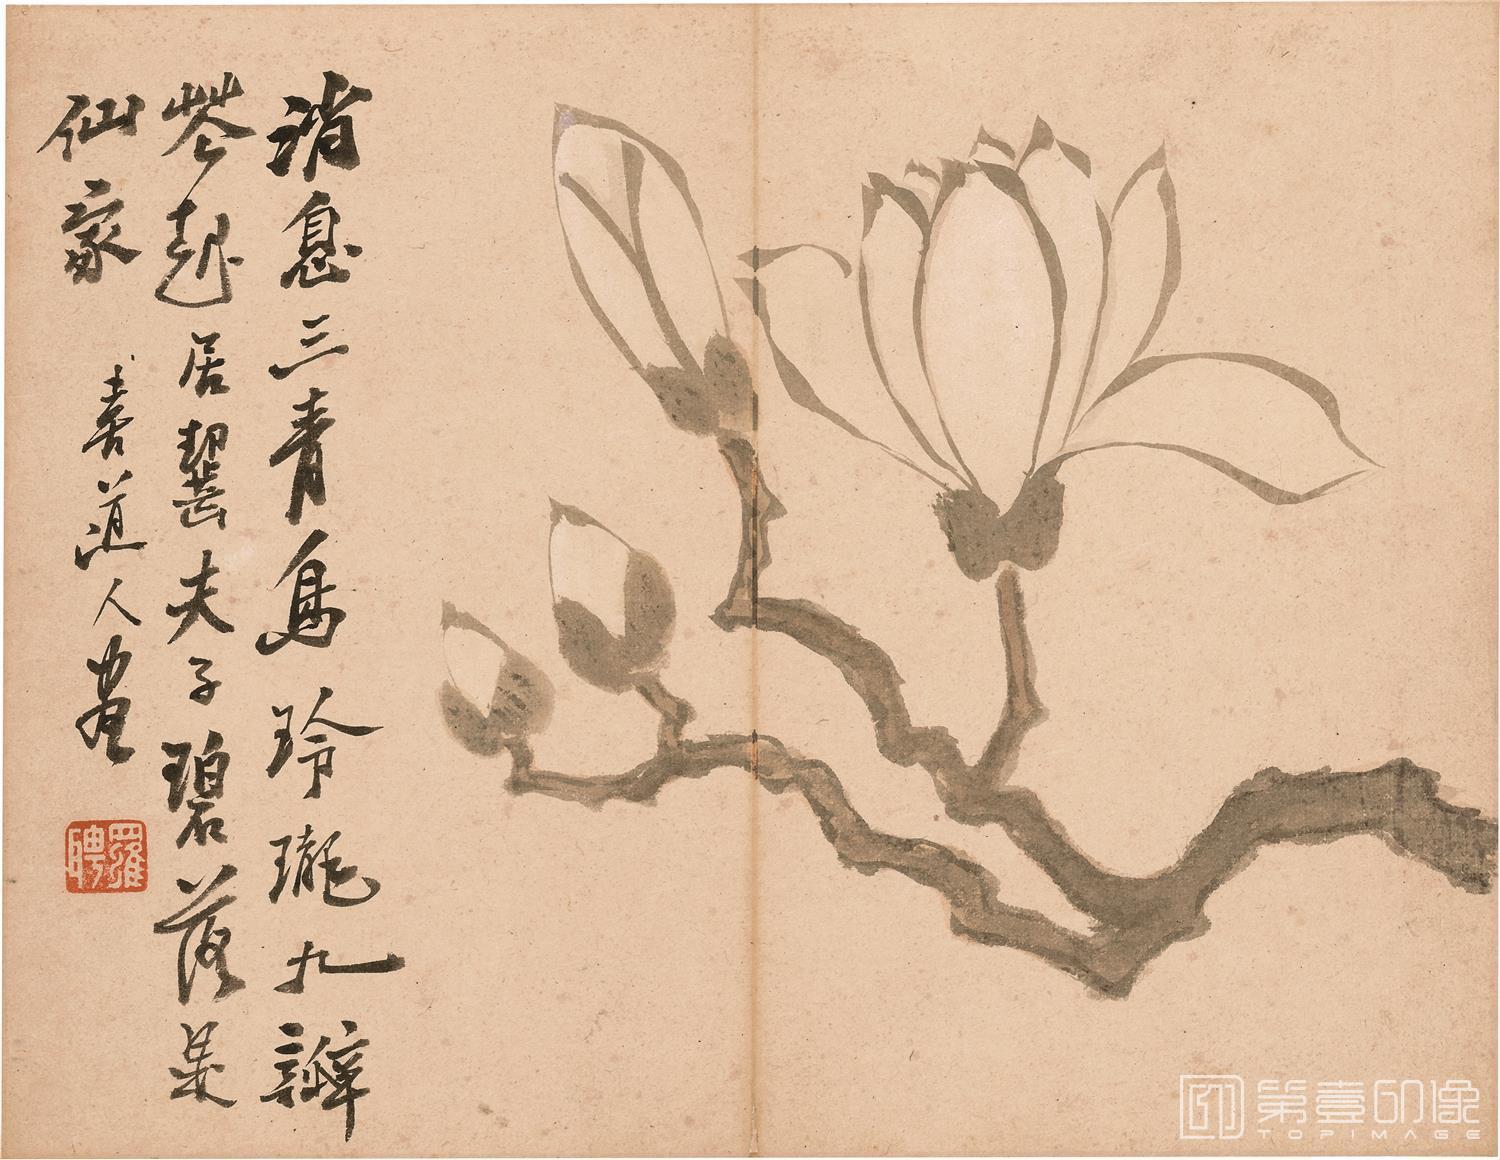 消息三青鳥玲瓏九瓣
花起居
夫子碧落是
仙家
道人畫
羅聘
第壹印像
TOPIMAGE